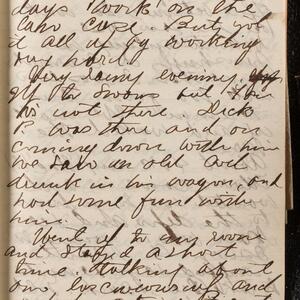 days work on the
law case. But got
it all up by working
very hard
Very rainy evening.
off to rooms but
is not there. Dick
P. was there and on
coming down with him
we saw an old
drunk in his wagon, and
had some fun with
him.
Went up to my room
and stayed a short
time. talking about
our and